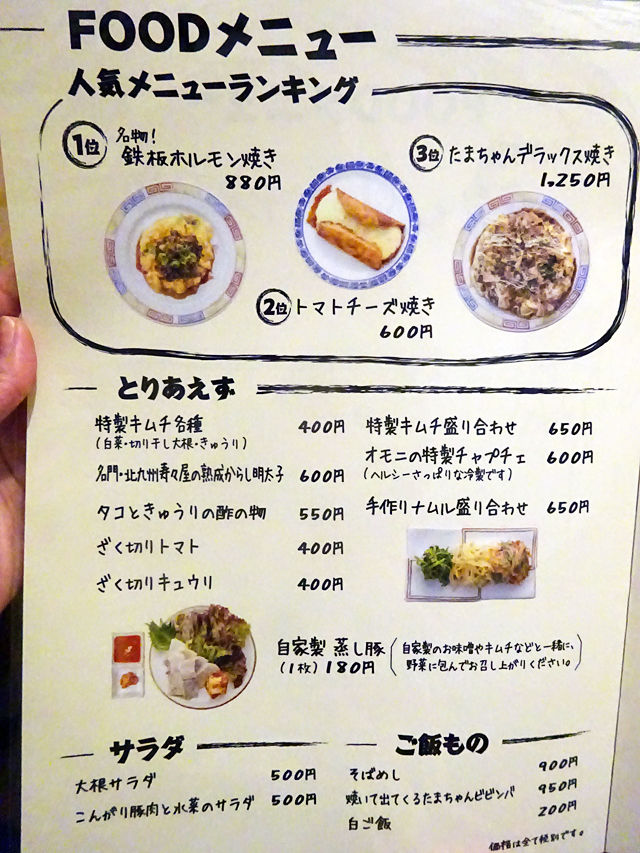 FOODメニュー
人気メニューランキング
1位 名物!
鉄板ホルモン焼き
880円
3位 たまちゃんデラックス焼き
1,250円
2位 トマトチーズ焼き
600円
とりあえず
特製キムチ各種 400円
(白菜・切り干し大根・きゅうり)
名門・北九州寿々屋の熟成からし明太子 600円
タコときゅうりの酢の物 550円
ざく切りトマト 400円
ざく切りキュウリ 400円
特製キムチ盛り合わせ 650円
オモニの特製チャプチェ 600円
(ヘルシーさっぱりな冷製です)
手作りナムル盛り合わせ 650円
自家製 蒸し豚
(1枚) 180円
(自家製のお味噌やキムチなどと一緒に、
野菜に包んでお召し上がりください。)
サラダ
大根サラダ 500円
こんがり豚肉と水菜のサラダ 500円
ご飯もの
そばめし 900円
焼いて出てくるたまちゃんビビンバ 950円
白ご飯 200円
価格は全て税別です。